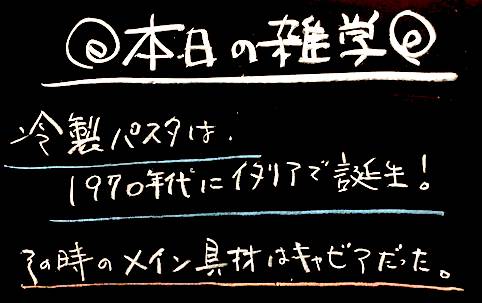 @本日の雑学@
冷製パスタは、
1970年代にイタリアで誕生!
その時のメイン具材はキャビアだった。